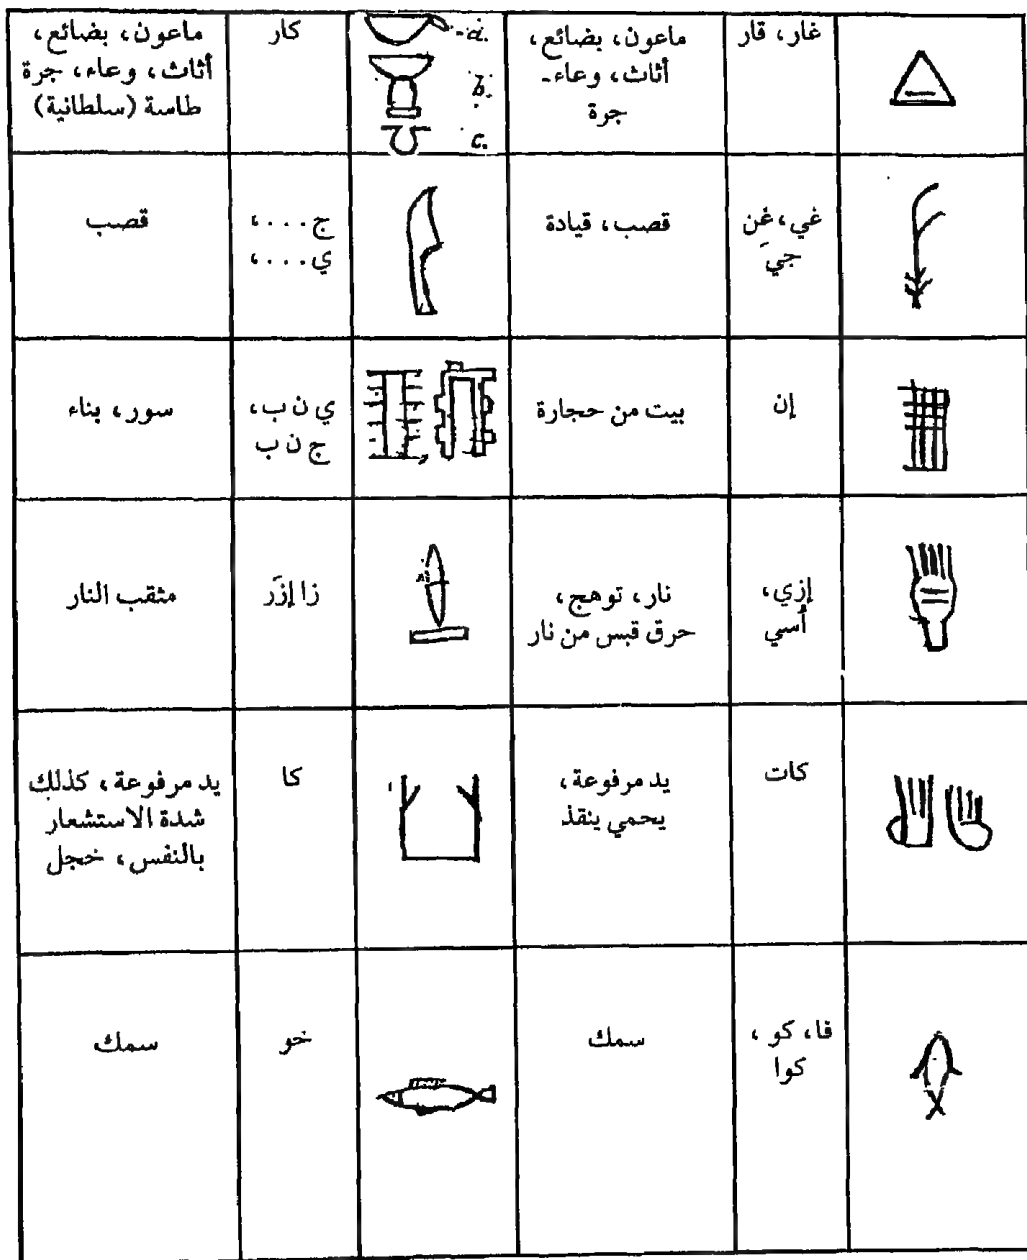 غار، قار
ماعون، بضائع،
أثاث، وعاء ـ
جرة
a.
b.
c.
كار
ماعون، بضائع،
أثاث، وعاء، جرة
طاسة (سلطانية)
غي، غن
جيَ
قصب، قيادة
ج . . . .،
ي . . . .،
قصب
إن
بيت من حجارة
ي ن ب،
ج ن ب
سور، بناء
إزي،
أسي
نار، توهج،
حرق قبس من نار
زا إزَر
مثقب النار
كات
يد مرفوعة،
يحمي ينقذ
كا
يد مرفوعة، كذلك
شدة الاستشعار
بالنفس، خجل
فا، كو،
كوا
سمك
خو
سمك